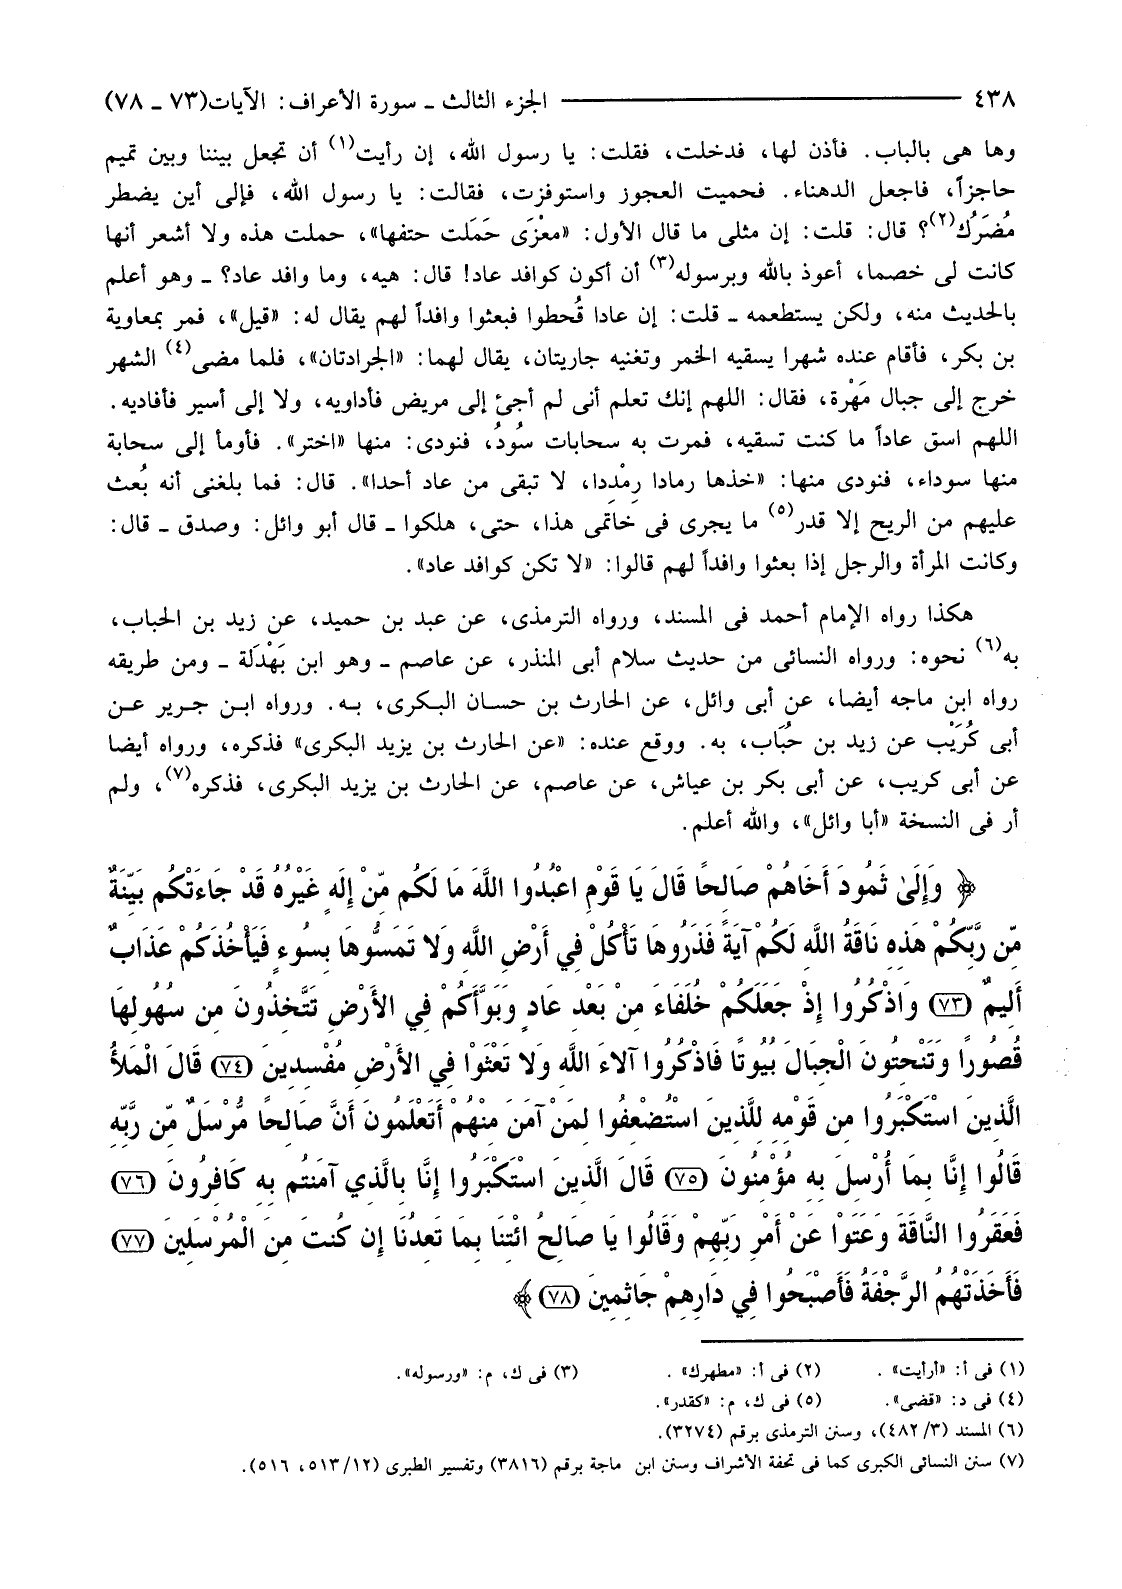 ٤٣٨ ـــــــــــــــــ الجزء الثالث ـ سورة الأعراف: الآيات(٧٣ ـ ٧٨)
وها هى بالباب. فأذن لها، فدخلت، فقلت: يا رسول الله، إن رأيت(١) أن تجعل بيننا وبين تميم
حاجزاً، فاجعل الدهناء. فحميت العجوز واستوفزت، فقالت: يا رسول الله، فإلى أين يضطر
مُضَرُك(٢)؟ قال: قلت: إن مثلى ما قال الأول: «معْزَى حَمَلت حتفها»، حملت هذه ولا أشعر أنها
كانت لى خصما، أعوذ بالله وبرسوله(٣) أن أكون كوافد عاد! قال: هيه، وما وافد عاد؟ ـ وهو أعلم
بالحديث منه، ولكن يستطعمه ـ قلت: إن عادا قُحطوا فبعثوا وافداً لهم يقال له: «قيل»، فمر بمعاوية
بن بكر، فأقام عنده شهرا يسقيه الخمر وتغنيه جاريتان، يقال لهما: «الجرادتان»، فلما مضى(٤) الشهر
خرج إلى جبال مَهْرة، فقال: اللهم إنك تعلم أنى لم أجئ إلى مريض فأداويه، ولا إلى أسير فأفاديه.
اللهم اسق عاداً ما كنت تسقيه، فمرت به سحابات سُودُ، فنودى: منها «اختر». فأومأ إلى سحابة
منها سوداء، فنودى منها: «خذها رمادا رِمْدِدا، لا تبقى من عاد أحدا». قال: فما بلغنى أنه بُعث
عليهم من الريح إلا قدر(٥) ما يجرى فى خاتمى هذا، حتى، هلكوا ـ قال أبو وائل: وصدق ـ قال:
وكانت المرأة والرجل إذا بعثوا وافداً لهم قالوا: «لا تكن كوافد عاد».
هكذا رواه الإمام أحمد فى المسند، ورواه الترمذى، عن عبد بن حميد، عن زيد بن الحباب،
به(٦) نحوه: ورواه النسائى من حديث سلام أبى المنذر، عن عاصم ـ وهو ابن بَهْدَلة ـ ومن طريقه
رواه ابن ماجه أيضا، عن أبى وائل، عن الحارث بن حسان البكرى، به. ورواه ابن جرير عن
أبى كُرَيْب عن زيد بن حُبَاب، به. ووقع عنده: «عن الحارث بن يزيد البكرى» فذكره، ورواه أيضا
عن أبى كريب، عن أبى بكر بن عياش، عن عاصم، عن الحارث بن يزيد البكرى، فذكره(٧)، ولم
أر فى النسخة «أبا وائل»، والله أعلم.
﴿ وَإِلَىٰ ثَمُودَ أَخَاهُمْ صَالِحًا قَالَ يَا قَوْمِ اعْبُدُوا اللَّهَ مَا لَكُم مِّنْ إِلَهٍ غَيْرُهُ قَدْ جَاءَتْكُم بَيِّنَةٌ
مِّن رَّبِّكُمْ هَذِهِ نَاقَةُ اللَّهِ لَكُمْ آيَةً فَذَرُوهَا تَأْكُلْ فِي أَرْضِ اللَّهِ وَلا تَمَسُّوهَا بِسُوءٍ فَيَأْخُذَكُمْ عَذَابٌ
أَلِيمٌ (٧٣) وَاذْكُرُوا إِذْ جَعَلَكُمْ خُلَفَاءَ مِنْ بَعْدِ عَادٍ وَبَوَّأَكُمْ فِي الأَرْضِ تَتَّخِذُونَ مِن سُهُولِهَا
قُصُورًا وَتَنْحِتُونَ الْجِبَالَ بُيُوتًا فَاذْكُرُوا آلاءَ اللَّهِ وَلا تَعْثَوْا فِي الأَرْضِ مُفْسِدِينَ (٧٤) قَالَ الْمَلأُ
الَّذِينَ اسْتَكْبَرُوا مِن قَوْمِهِ لِلَّذِينَ اسْتُضْعِفُوا لِمَنْ آمَنَ مِنْهُمْ أَتَعْلَمُونَ أَنَّ صَالِحًا مُّرْسَلٌ مِّن رَّبِّهِ
قَالُوا إِنَّا بِمَا أُرْسِلَ بِهِ مُؤْمِنُونَ (٧٥) قَالَ الَّذِينَ اسْتَكْبَرُوا إِنَّا بِالَّذِي آمَنتُم بِهِ كَافِرُونَ (٧٦)
فَعَقَرُوا النَّاقَةَ وَعَتَوْا عَنْ أَمْرِ رَبِّهِمْ وَقَالُوا يَا صَالِحُ ائْتِنَا بِمَا تَعِدُنَا إِن كُنتَ مِنَ الْمُرْسَلِينَ (٧٧)
فَأَخَذَتْهُمُ الرَّجْفَةُ فَأَصْبَحُوا فِي دَارِهِمْ جَاثِمِينَ (٧٨) ﴾
(١) فى أ: «أرأيت». (٢) فى أ: «مطهرك». (٣) فى ك، م: «ورسوله».
(٤) فى د: «قضى». (٥) فى ك، م: «كقدر».
(٦) المسند (٣/ ٤٨٢)، وسنن الترمذى برقم (٣٢٧٤).
(٧) سنن النسائى الكبرى كما فى تحفة الأشراف وسنن ابن ماجة برقم (٣٨١٦) وتفسير الطبرى (١٢/ ٥١٣، ٥١٦).